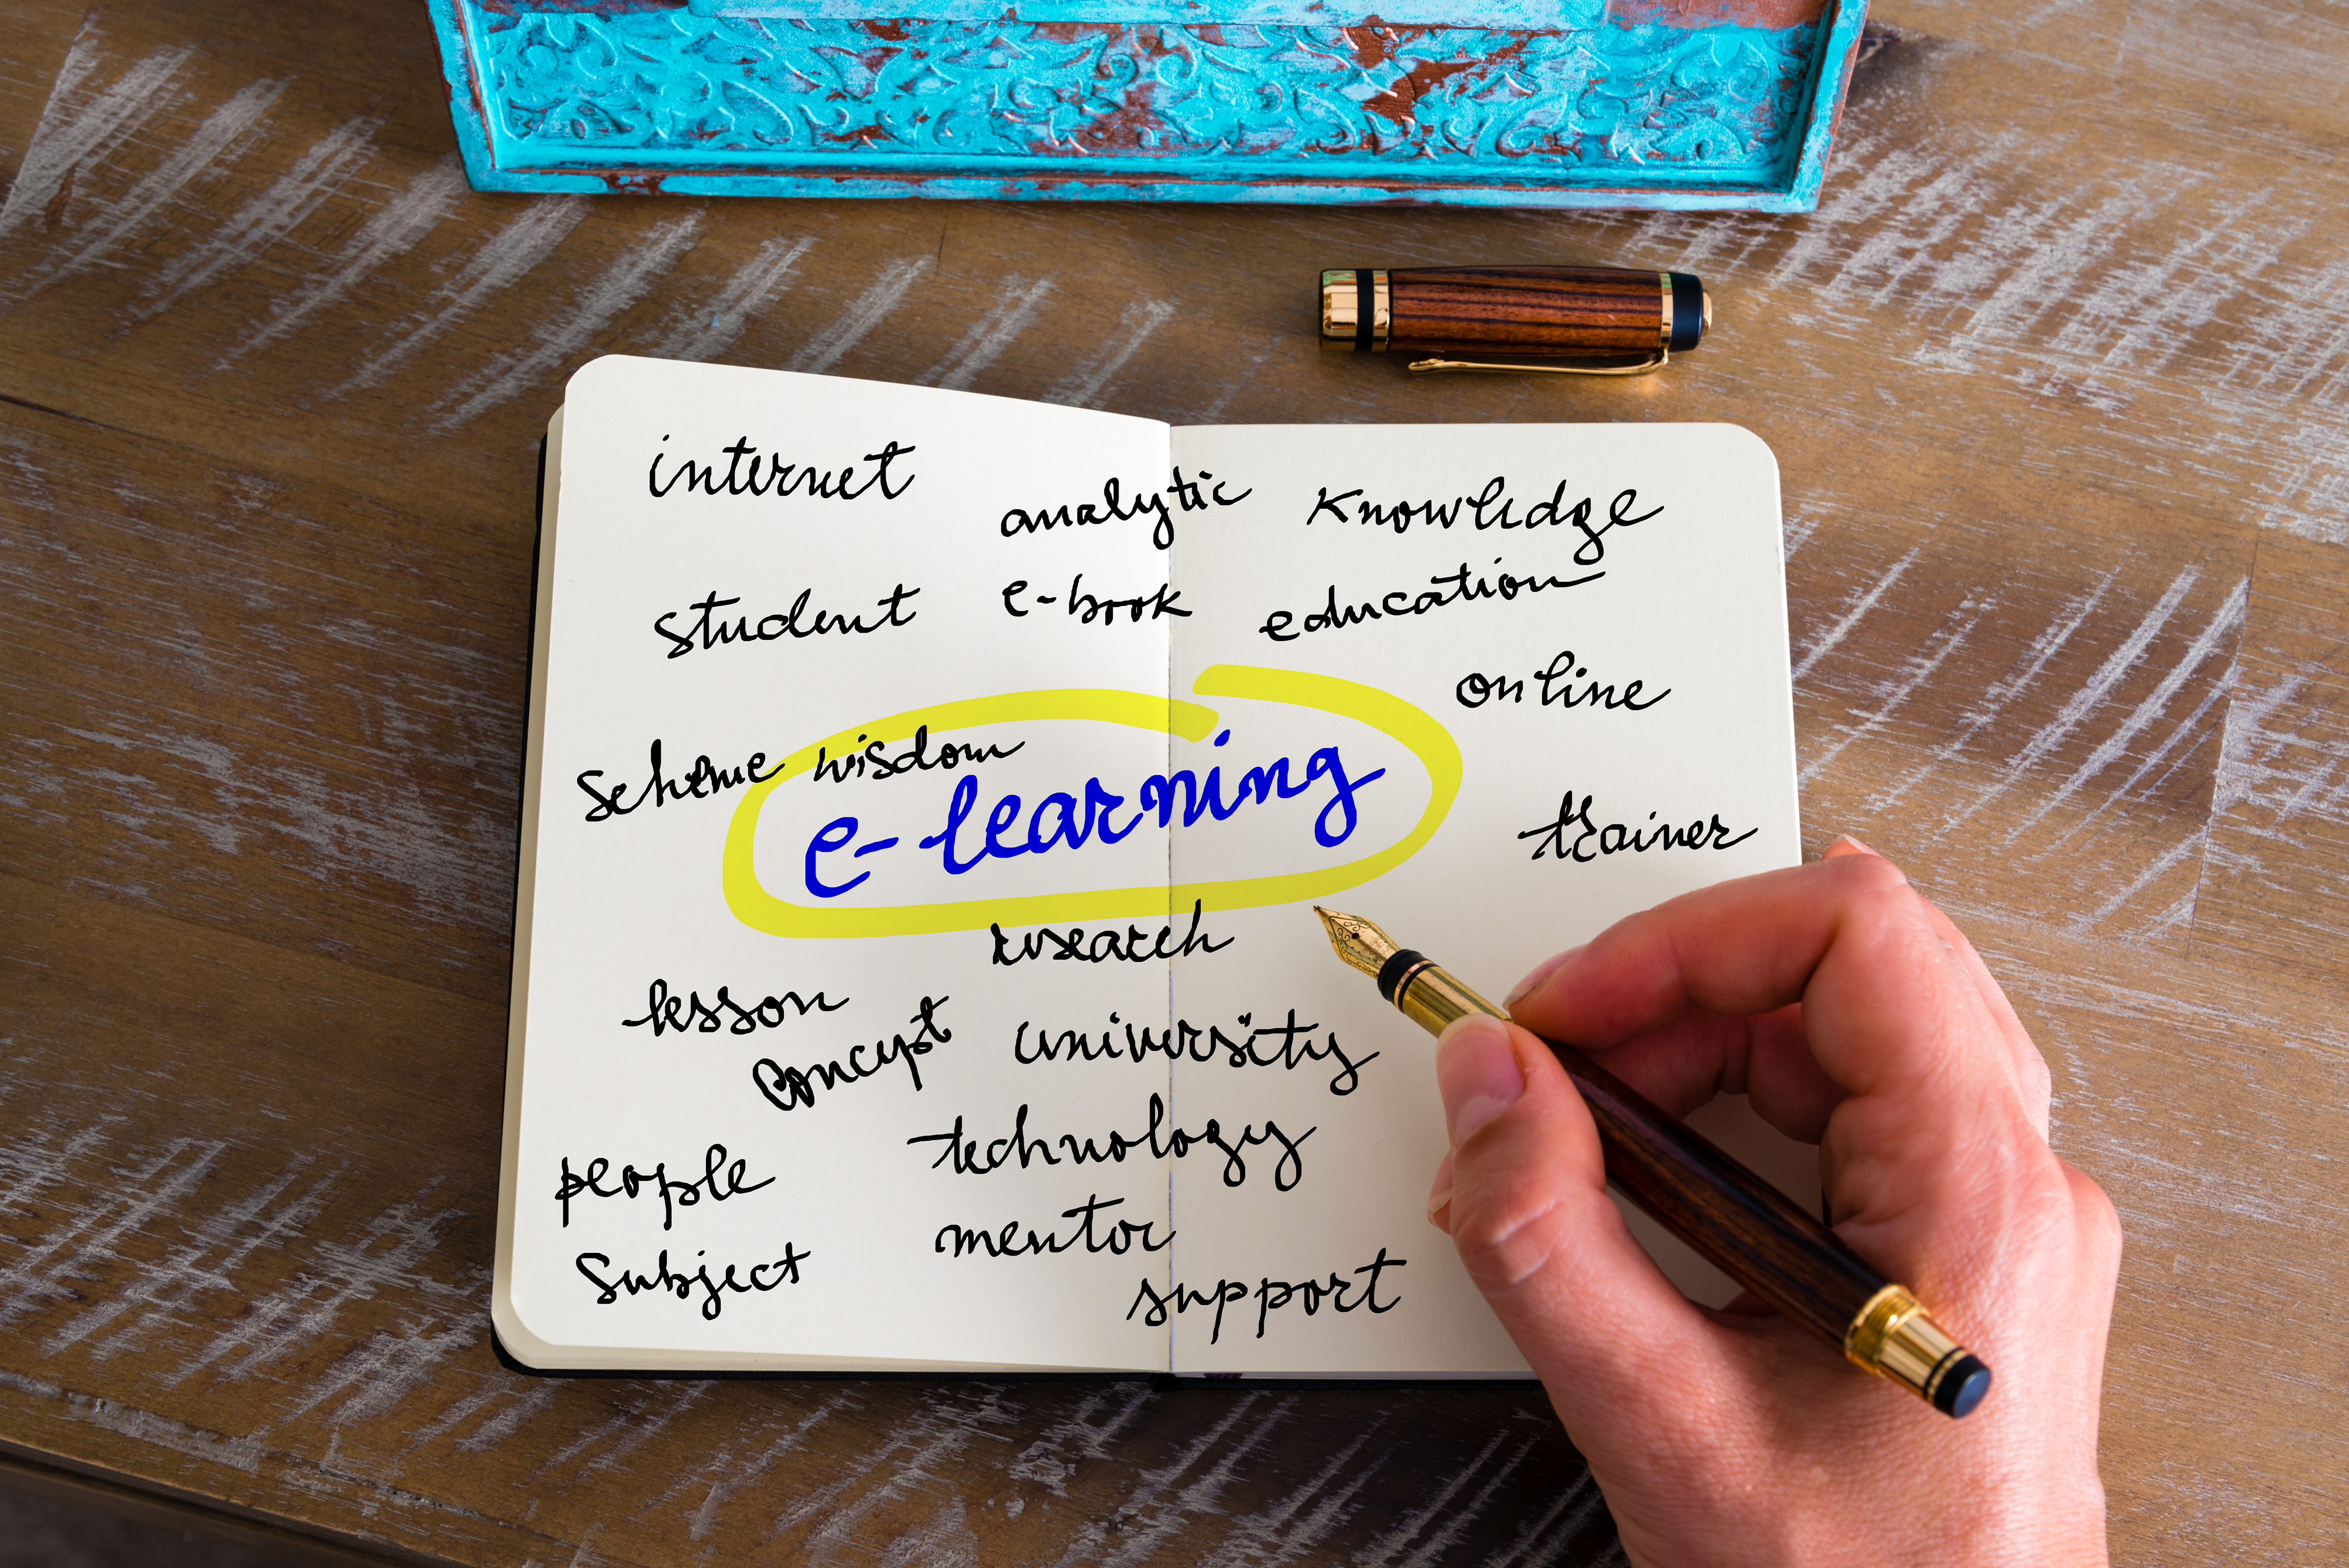 internet
analytic
Knowledge
student
e-book
education
online
scheme
wisdom
e-learning
trainer
research
lesson
concept
university
technology
people
mentor
subject
support